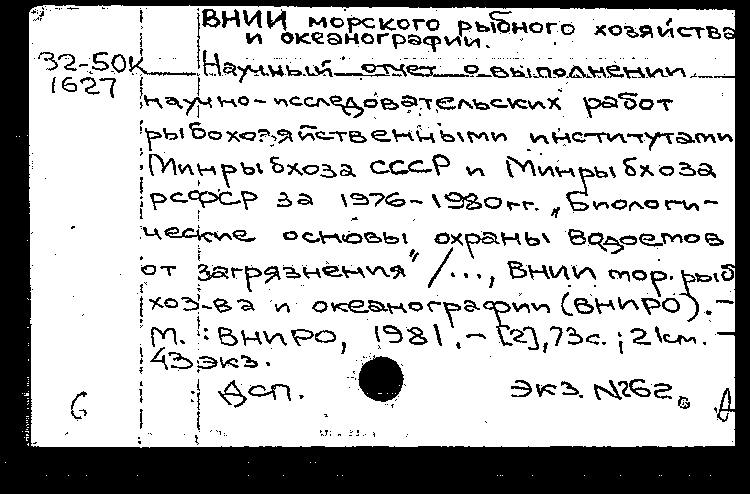 ВНИИ морского рыбного хозяйства
и океанографии.
32-50К Научный отчет о выполнении
1627
научно-исследовательских работ
рыбохозяйственными институтами
Минрыбхоза СССР и Минрыбхоза
РСФСР за 1976-1980гг. „Биологи-
ческие основы охраны водоемов
от загрязнения" /..., ВНИИ мор. рыб
хоз-ва и океанографии (ВНИРО). –
М. : ВНИРО, 1981. – [2], 73с. ; 21см. –
43экз.
6 Дсп. экз. №262.